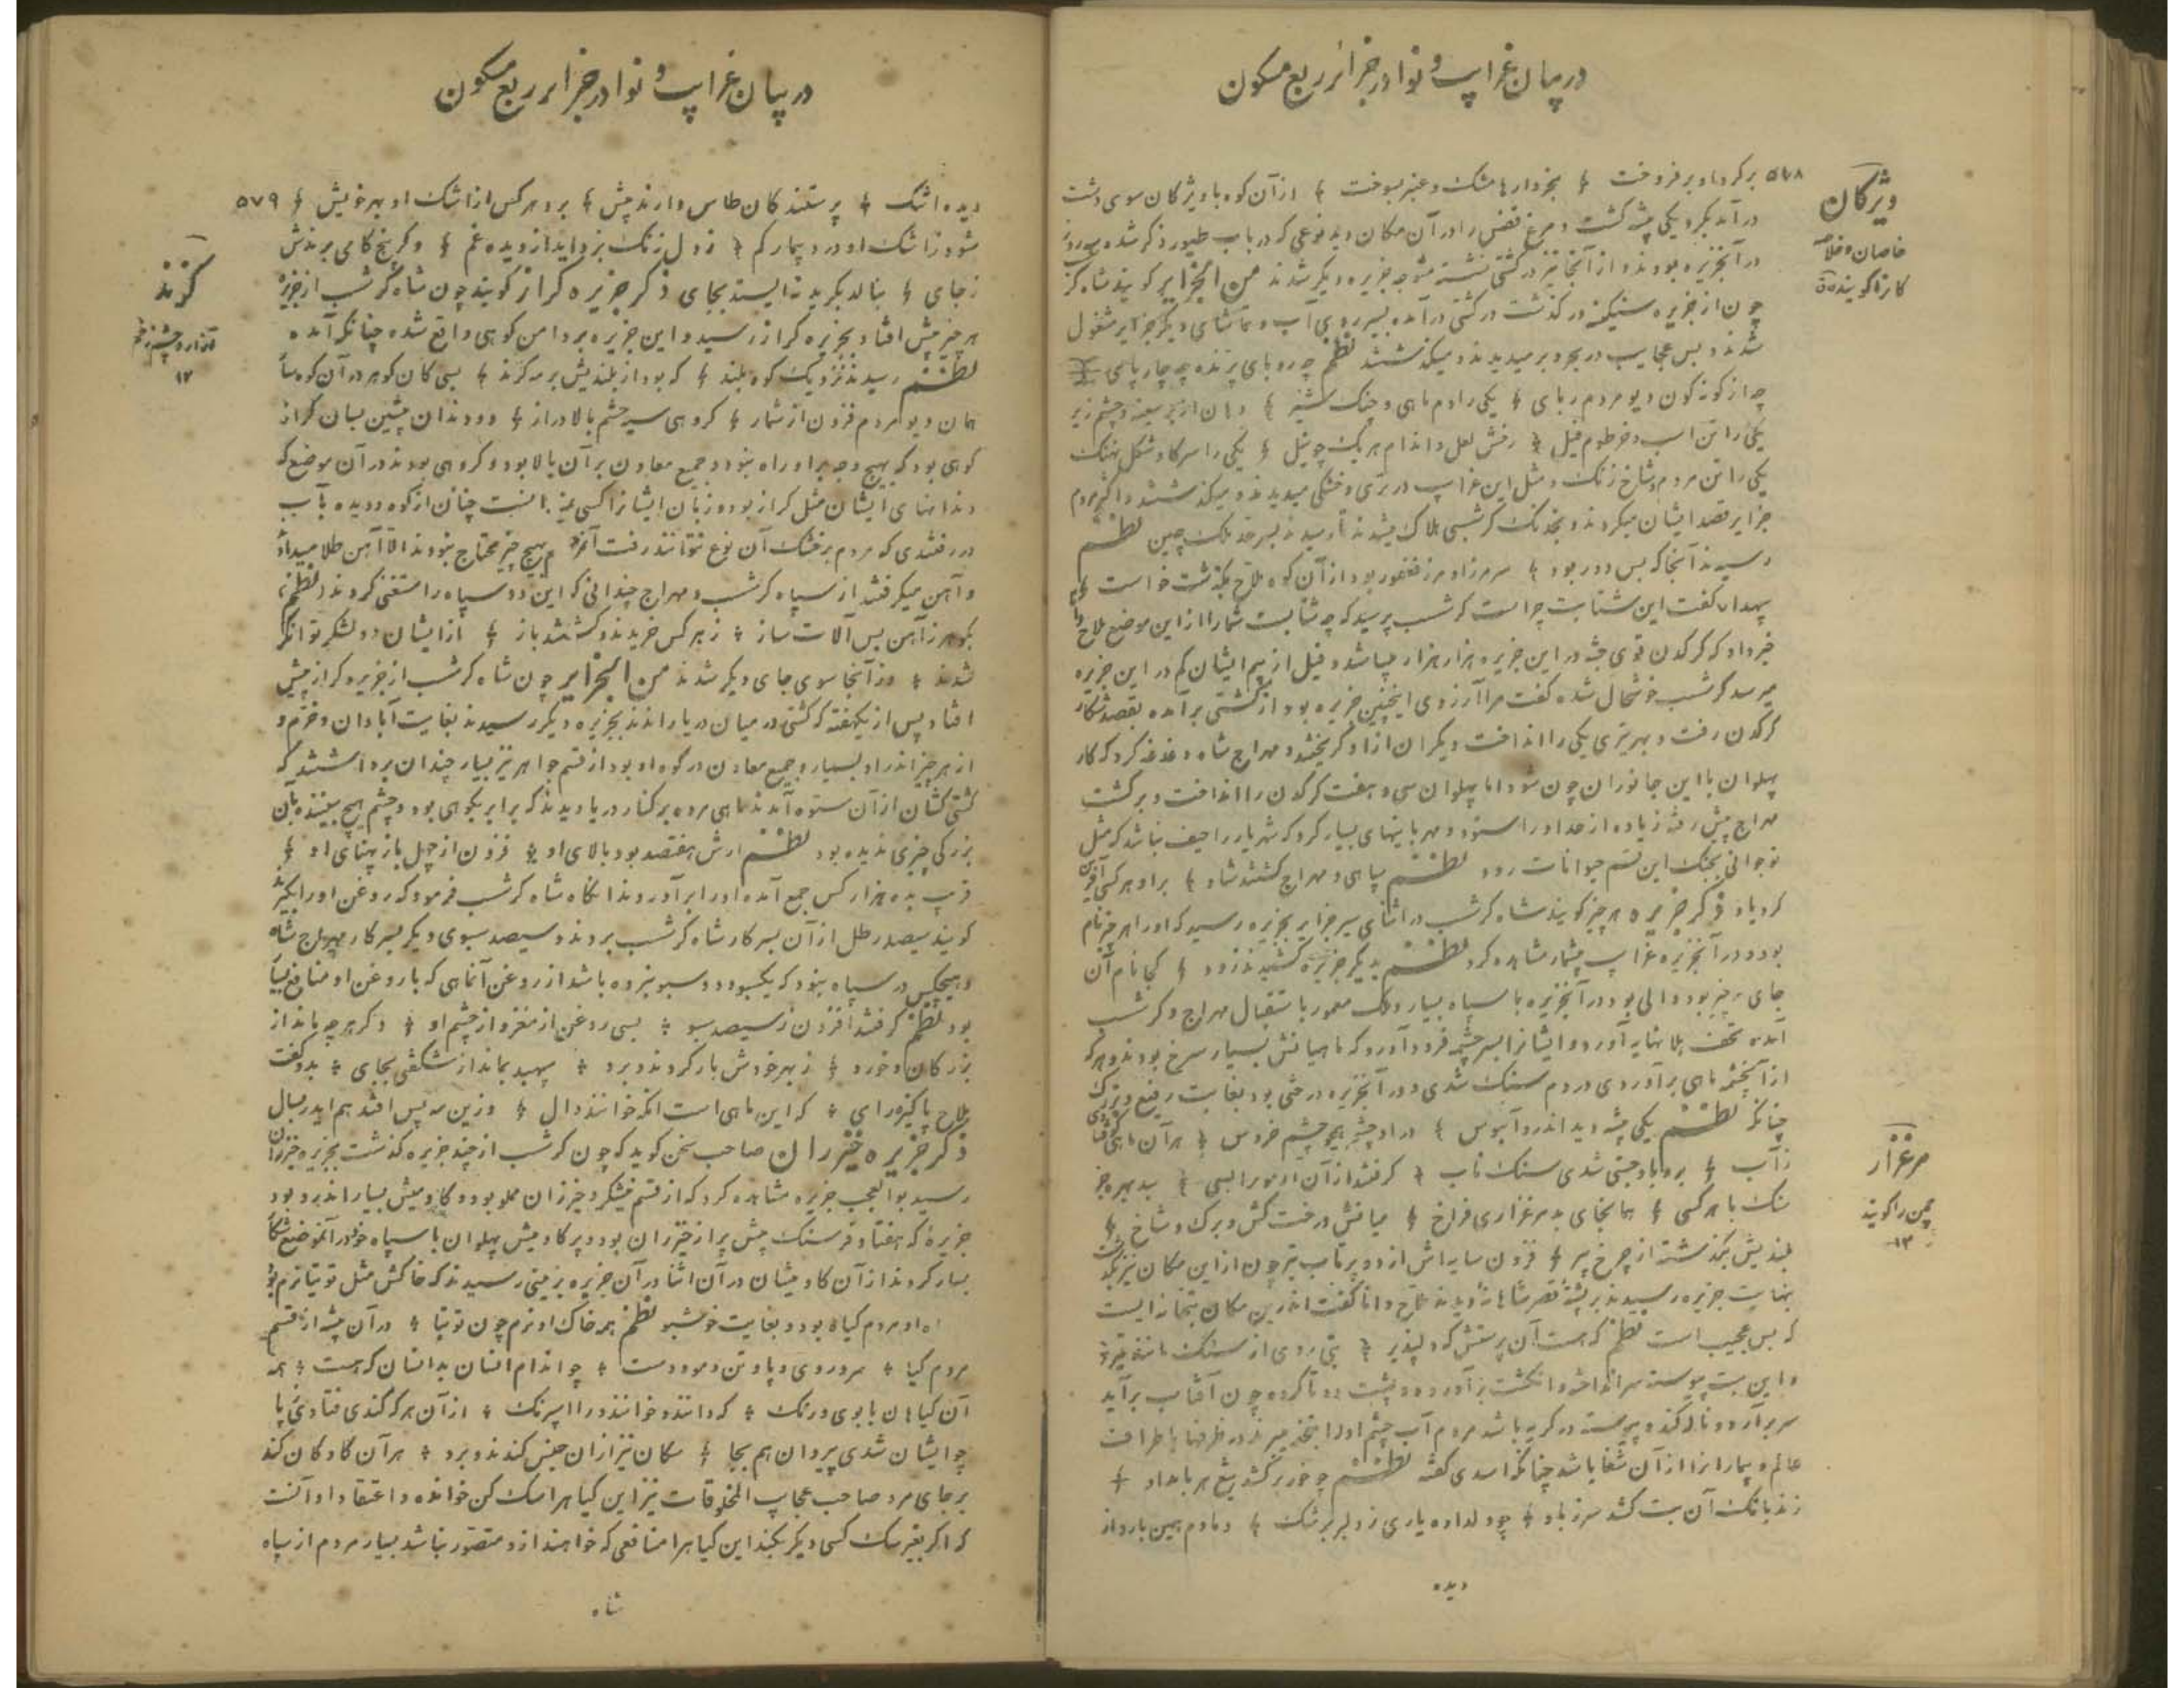 در بیان غرایب و نوادر جزایر ربع مسکون
۵۷۸ برکرد او بر فروخت بخروارها مشک و عنبر بسوخت از آن کوه با ویژگان سوی دشت
ویژکان
خاصان و خلاصه
کانرا کویند
درآمد بکرد یکی پشه کشت و مرغ ققنس را در آن مکان دید نوعی که در باب طیور ذکر شده
در آنجزیره بودند و از آنجا نیز در کشتی نشسته متوجه جزیره دیکر شدند من الجزایر کویند شاه کر
چون از جزیره سنیکنه در کذشت در کشتی درآمده بسیر روی آب و تماشای دیکر جزایر مشغول
شدند و بس عجایب در بحر و بر میدیدند و میکذشتند نظم چه روباهی پرنده چه چارپای
چه از کونه کون دیو مردم ربای یکی را دم ماهی و چنک شیر دهان از بر سینه و چشم زیر
یکی را تن اسب و خرطوم فیل رخش لعل و اندام هریک چو نیل یکی را سر کاو شکل نهنک
یکی را تن مردم و شاخ رنک و مثل این غرایب در تری و خشکی میدیدند و میکذشتند و اکثر مردم
جزایر قصد ایشان میکردند و بخدنک کرشسبی هلاک میشدند تا رسیدند بسر حد ملک چین نظم
رسیدند آنجا که بس دور بود سر مرز او مرز فغفور بود از آن کوه ملاح بکذشت خواست
سپهدار کفت این شتابت چراست کرشسب پرسید که چه شتابست شما را از این موضع ملاح
خبر داد که کرکدن قوی جثه در این جزیره هزار هزار میباشد و فیل از بیم ایشان کم در این جزیره
میرسد کرشسب خوشحال شده کفت مرا آرزوی اینچنین جزیره بود از کشتی برآمده بقصد شکار
کرکدن رفت و بهر تیری یکی را انداخت دیکران از او کریختند و مهراج شاه دغدغه کرد که کار
پهلوان با این جانوران چون شود اما پهلوان سی و هفت کرکدن را انداخت و برکشت
مهراج پیش رفته زیاده از حد او را ستود و مهربانیهای بسیار کرد که شهریار را حیف نباشد که مثل
تو جوانی بجنک این قسم حیوانات رود نظم سپاهی و مهراج کشتند شاد بر او هر کسی آفرین
کرد یاد ذکر جزیره هرچز کویند شاه کرشسب در اثنای سیر جزایر بجزیره رسید که او را هرچز نام
بود و در آنجزیره غرایب بیشمار مشاهده کرد نظم بدیکر جزیره کشیدند زود کجا نام آن
جای هرچز بود والی بود در آنجزیره با سپاه بسیار و ملک معمور باستقبال مهراج و کرشسب
آمده تحف بلا نهایه آورد و ایشانرا بسر چشمه فرود آورد که ماهیانش بسیار سرخ بودند و هرکه
از آنچشمه ماهی برآوردی در دم سنک شدی و در آنجزیره درختی بود بغایت رفیع و بزرک
چنانکه نظم یکی پشه دید اندرو آبنوس در او چشمه همچو چشم خروس هر آن ماهی کاوفتادی
زآب برو باد جستی شدی سنک ناب کرفتند از آن آزمورا بسی بد بهره جز
مرغزار
چمن را کویند
۱۲
سنک با هر کسی همانجای بد مرغزاری فراخ میانش درخت کش و برک و شاخ
بلندیش بگذشته از چرخ پیر فزون سایه اش از دو پرتاب تیر چون از این مکان نیز بگذشت
بنهایت جزیره رسیدند بر پشته قصر شاهانه دیدند ملاح دانا کفت اندرین مکان بتخانه ایست
که بس عجیب است نظم که هست آن پرستش که دلپذیر بتی روی از سنک مانند قیر
و این بت پیوسته سر انداخته و انکشت برآورده و پشت دوتا کرده چون آفتاب برآید
سر برآرد و ناله کند و پیوسته در کریه باشد مردم آب چشم او را بتحفه میبرند در ظرفها باطراف
عالم و بیمارانرا از آن شفا باشد چنانکه اسدی کفته نظم چو خور برکشد تیغ هر بامداد
زند بانک آن بت کشد سرد باد چو دلداده یاری ز دلبر برشک دمادم همین بارد از
دیده
در بیان غرایب و نوادر جزایر ربع مسکون
دیده اشک پرستندکان طاس دارند پیش برد هر کس از اشک او بهر خویش ۵۷۹
شود زاشک او درد بیمار کم ز دل زنک بزداید از دیده غم و کر پنج کامی برندش
کزند
آزار و چشم زخم
۱۲
زجای بنالد بکرید نه ایستد بجای ذکر جزیره کراز کویند چون شاه کرشسب از جزیره
هرچز پیش افتاد بجزیره کراز رسید و این جزیره بر دامن کوهی واقع شده چنانکه آمده
نظم رسیدند نزدیک کوه بلند که بود از بلندیش بر مه کزند بسی کان کوهر در آن کوهسار
همان دیو مردم فزون از شمار کروهی سیه چشم بالا دراز دو دندان پیشین بسان کراز
کوهی بود که بهیچ وجه بر او راه نبود و جمیع معادن بر آن بالا بود و کروهی بودند در آن موضع که
دندانهای ایشان مثل کراز بود و زبان ایشانرا کسی نمیدانست چنان از کوه دویده بآب
در رفتندی که مردم بر خشک آن نوع نتوانند رفت آخر بهیچ چیز محتاج نبودند الا آهن طلا میدادند
و آهن میکرفتند از سپاه کرشسب و مهراج چندانی که این دو سپاه را مستغنی کردند نظم
بکوهر ز آهن بس آلات ساز ز هر کس خریدند و کشتند باز از ایشان دو لشکر توانکر
شدند وز آنجا سوی جای دیکر شدند من الجزایر چون شاه کرشسب از جزیره کراز پیش
افتاد پس از یکهفته که کشتی در میان دریا راندند بجزیره دیکر رسیدند بغایت آبادان و خرم و
از هر چیز اندر او بسیار و جمیع معادن در کوه او بود از قسم جواهر نیز بسیار چندان برداشتند که
کشتی کشان از آن ستوه آمدند ماهی مرده بر کنار دریا دیدند که برابر بکوهی بود و چشم هیچ بیننده بآن
بزرکی چیزی ندیده بود نظم ارش هفتصد بود بالای او فزون از چهل باز پهنای او
قریب بده هزار کس جمع آمده او را برآوردند آنکاه شاه کرشسب فرمود که روغن او را بکیرند
کویند سیصد رطل از آن بسرکار شاه کرشسب بردند و سیصد سبوی دیکر بسرکار مهراج شاه
و هیچکس در سپاه نبود که یکسبو و دو سبو نبرده باشد از روغن آنماهی که با روغن او منافع بسیار
بود نظم کرفتند افزون ز سیصد سبو بسی روغن از مغز و از چشم او دکر هر چه ماند از
بزرکان و خرد ز بهر خورش بار کردند و برد سپهبد بماند از شکفتی بجای بدو کفت
ملاح پاکیزه رای که این ماهی است آنکه خوانند وال وزین مه پس افتد هم ایدر بسال
ذکر جزیره خیزران صاحب سخن کوید که چون کرشسب از چند جزیره کذشت بجزیره خیزران
رسید بوالعجب جزیره مشاهده کرد که از قسم نیشکر و خیزران مملو بود و کاو میش بسیار اندرو بود
جزیرهٔ که هفتاد فرسنک پیش پر از خیزران بود و پر کاو میش پهلوان با سپاه خود در آنموضع شکار
بسیار کردند از آن کاو میشان در آن اثنا در آن جزیره بزمینی رسیدند که خاکش مثل توتیا نرم بود
او مردم کیاه بود و بغایت خوشبو نظم همه خاک او نرم چون توتیا در آن پشه از قسم
مردم کیا سر و روی و پا و تن و مو و دست چو اندام انسان بدانسان که هست همه
آن کیاهان با بوی و رنک که دانند و خوانند ورا استرنک از آن هر که کندی فتادی ز پا
چو ایشان شدی بیروان هم بجا سکان نیز از آن جنس کندند و برد هر آن کاو کان کند
بر جای مرد صاحب عجایب المخلوقات نیز این کیاه را سک کن خوانده و اعتقاد او آنست
که اکر بغیر سک کسی دیکر بکند این کیاه را منافعی که خواهند از و متصور نباشد بسیار مردم از سپاه
شاه